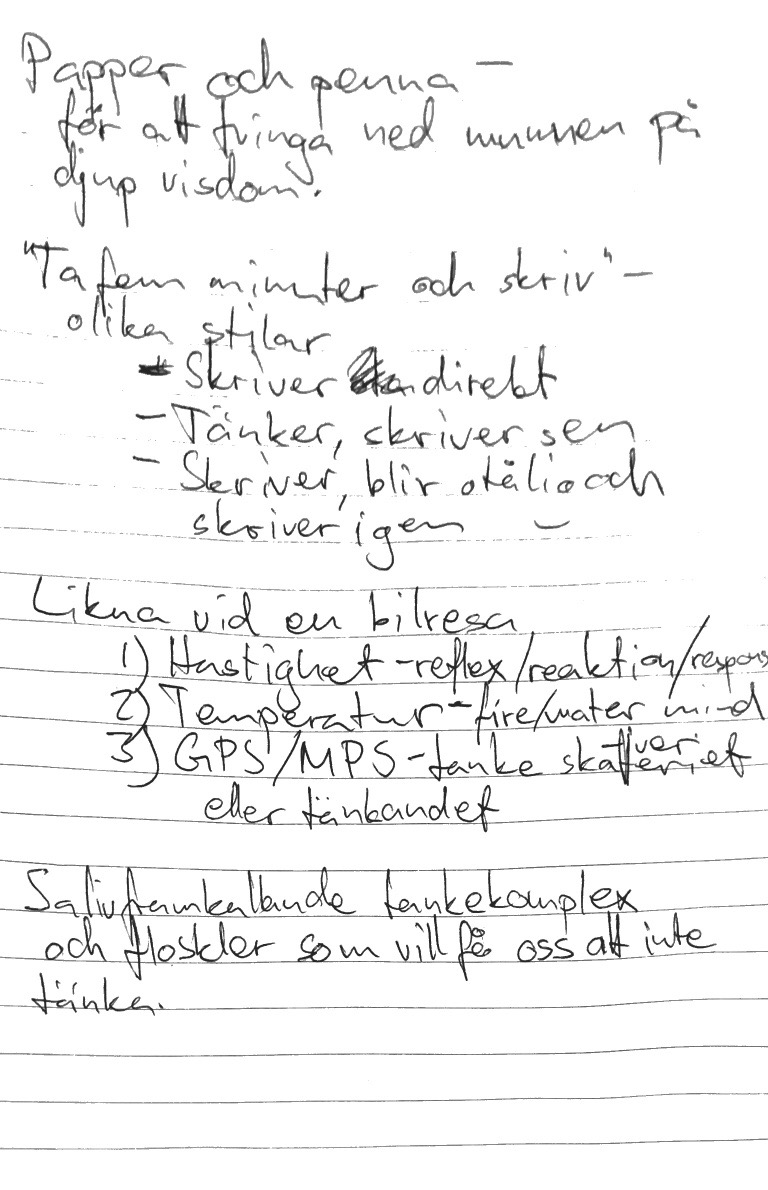 Papper och penna –
för att tvinga ned munnen på
djup visdom.
"Ta fem minuter och skriv" –
olika stilar
- Skriver direkt
- Tänker, skriver sen
- Skriver, blir otålig och
skriver igen
Likna vid en bilresa
1) Hastighet - reflex/reaktion/respons
2) Temperatur - fire/water mind
3) GPS/MPS - tanke
eller tänkandet
Salivframkallande tankekomplex
och floskler som vill få oss att inte
tänka.